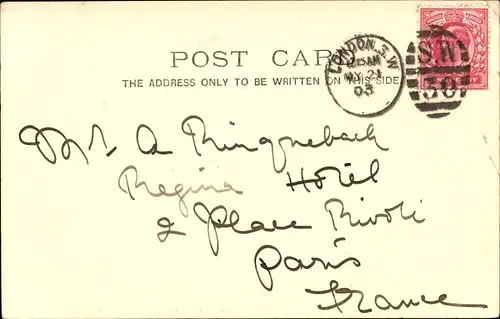 POST CARD
THE ADDRESS ONLY TO BE WRITTEN ON THIS SIDE
LONDON.S.W
MY 21
03
S.W
38
Mr A Ringneback
Regina Hotel
2 Place Rivoli
Paris
France